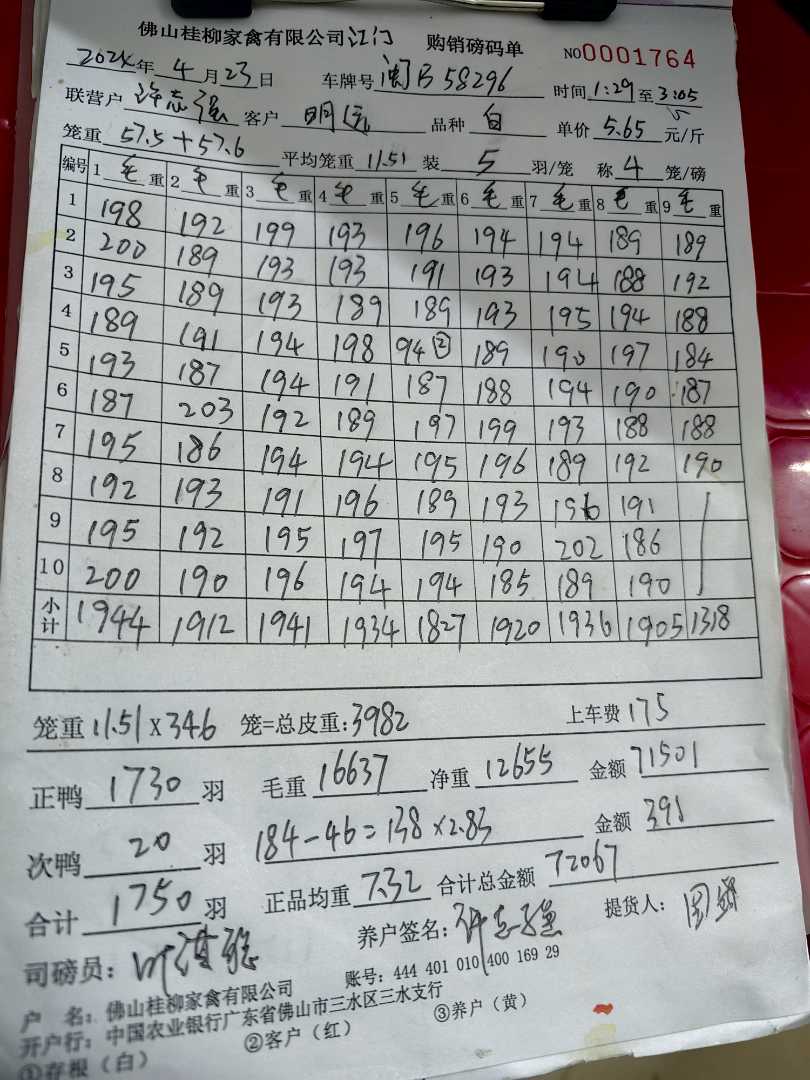 佛山桂柳家禽有限公司江门 购销磅码单 NO0001764
2024年4月23日 车牌号 闽B58296 时间1:29至3:05
联营户 许志强 客户 明 品种 白 单价 5.65 元/斤
笼重 57.5+57.6 平均笼重 11.51 装 5 羽/笼 称 4 笼/磅
编号 1 毛 重 2 毛 重 3 毛 重 4 毛 重 5 毛 重 6 毛 重 7 毛 重 8 毛 重 9 毛 重
1 198 192 199 193 196 194 194 189 189
2 200 189 193 193 191 193 194 188 192
3 195 189 193 189 189 193 195 194 188
4 189 191 194 198 94② 189 190 197 184
5 193 187 194 191 187 188 194 190 187
6 187 203 192 189 197 199 193 188 188
7 195 186 194 194 195 196 189 192 190
8 192 193 191 196 189 193 196 191
9 195 192 195 197 195 190 202 186
10 200 190 196 194 194 185 189 190
小计 1944 1912 1941 1934 1827 1920 1936 1905 1318
笼重 11.51×346 笼=总皮重:3982 上车费 175
正鸭 1730 羽 毛重 16637 净重 12655 金额 71501
次鸭 20 羽 184-46=138×2.83 金额 391
合计 1750 羽 正品均重 7.32 合计总金额 72067
司磅员: 叶 养户签名: 许志强 提货人:
户 名: 佛山桂柳家禽有限公司 账号: 444 401 010 400 169 29
开户行: 中国农业银行广东省佛山市三水区三水支行
①存根（白） ②客户（红） ③养户（黄）